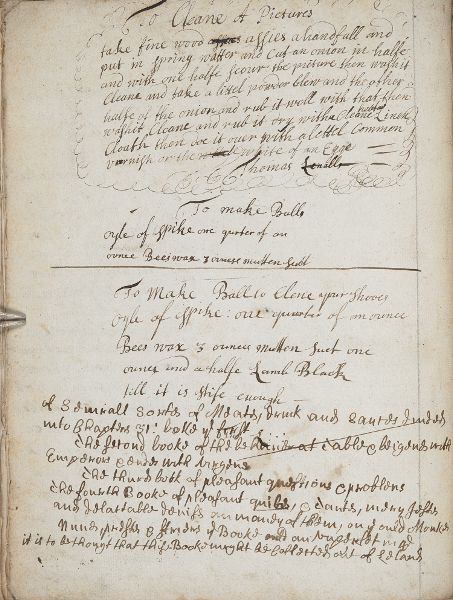 To Cleane A Pictures
take fine wood ashes ashes a handfull and
put in spring watter and Cut an onion in halfe
and with one halfe scour the picture then washit
Cleane and take a littel powder blew and the other
halfe of the onion and rub it well with that then
washit Cleane and rub it dry with a Cleane Linek
Cloath then doe it ouer with a lettel Common
varnish or then white of an Egge
Thomas
To make Balls
oyle of spike one qurter of an
ounce Beeswax 3 ounces mutten Suet
To Make Ball to Clene your Shooes
oyle of spike: one quarter of an ounce
Bees wax 3 ounces mutten Suet one
ounce and a halfe Lamb Black
till it is stife enough
of Seuirall Sortes of Meates, drink and Sauces
into Chapters 31: booke ye first
The second booke of the at table
Emperors
The third book of pleasant questions & problems
The fourth Booke of pleasant merry Jestes
and delattable of many of them, on
Nunes, & ye Booke and
it is to be thought that this Booke might be Collected out of